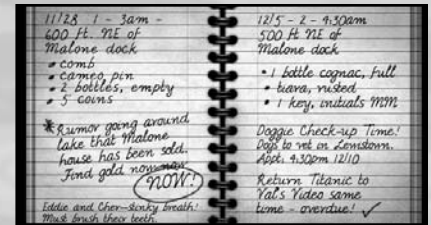 11/28 1 - 3am -
600 ft. NE of
Malone dock
• comb
• cameo pin
• 2 bottles, empty
• 5 coins
* Rumor going around
lake that Malone
house has been sold.
Find gold now
NOW!
Eddie and Cher-stinky breath!
Must brush their teeth.
12/5 - 2 - 4:30am
500 ft. NE of
Malone dock
• 1 bottle cognac, full
• tiara, rusted
• 1 key, initials MM
Doggie Check-up Time!
Dogs to vet in Lewistown.
Appt. 4:30pm 12/10
Return Titanic to
Val's Video same
time - overdue! ✓